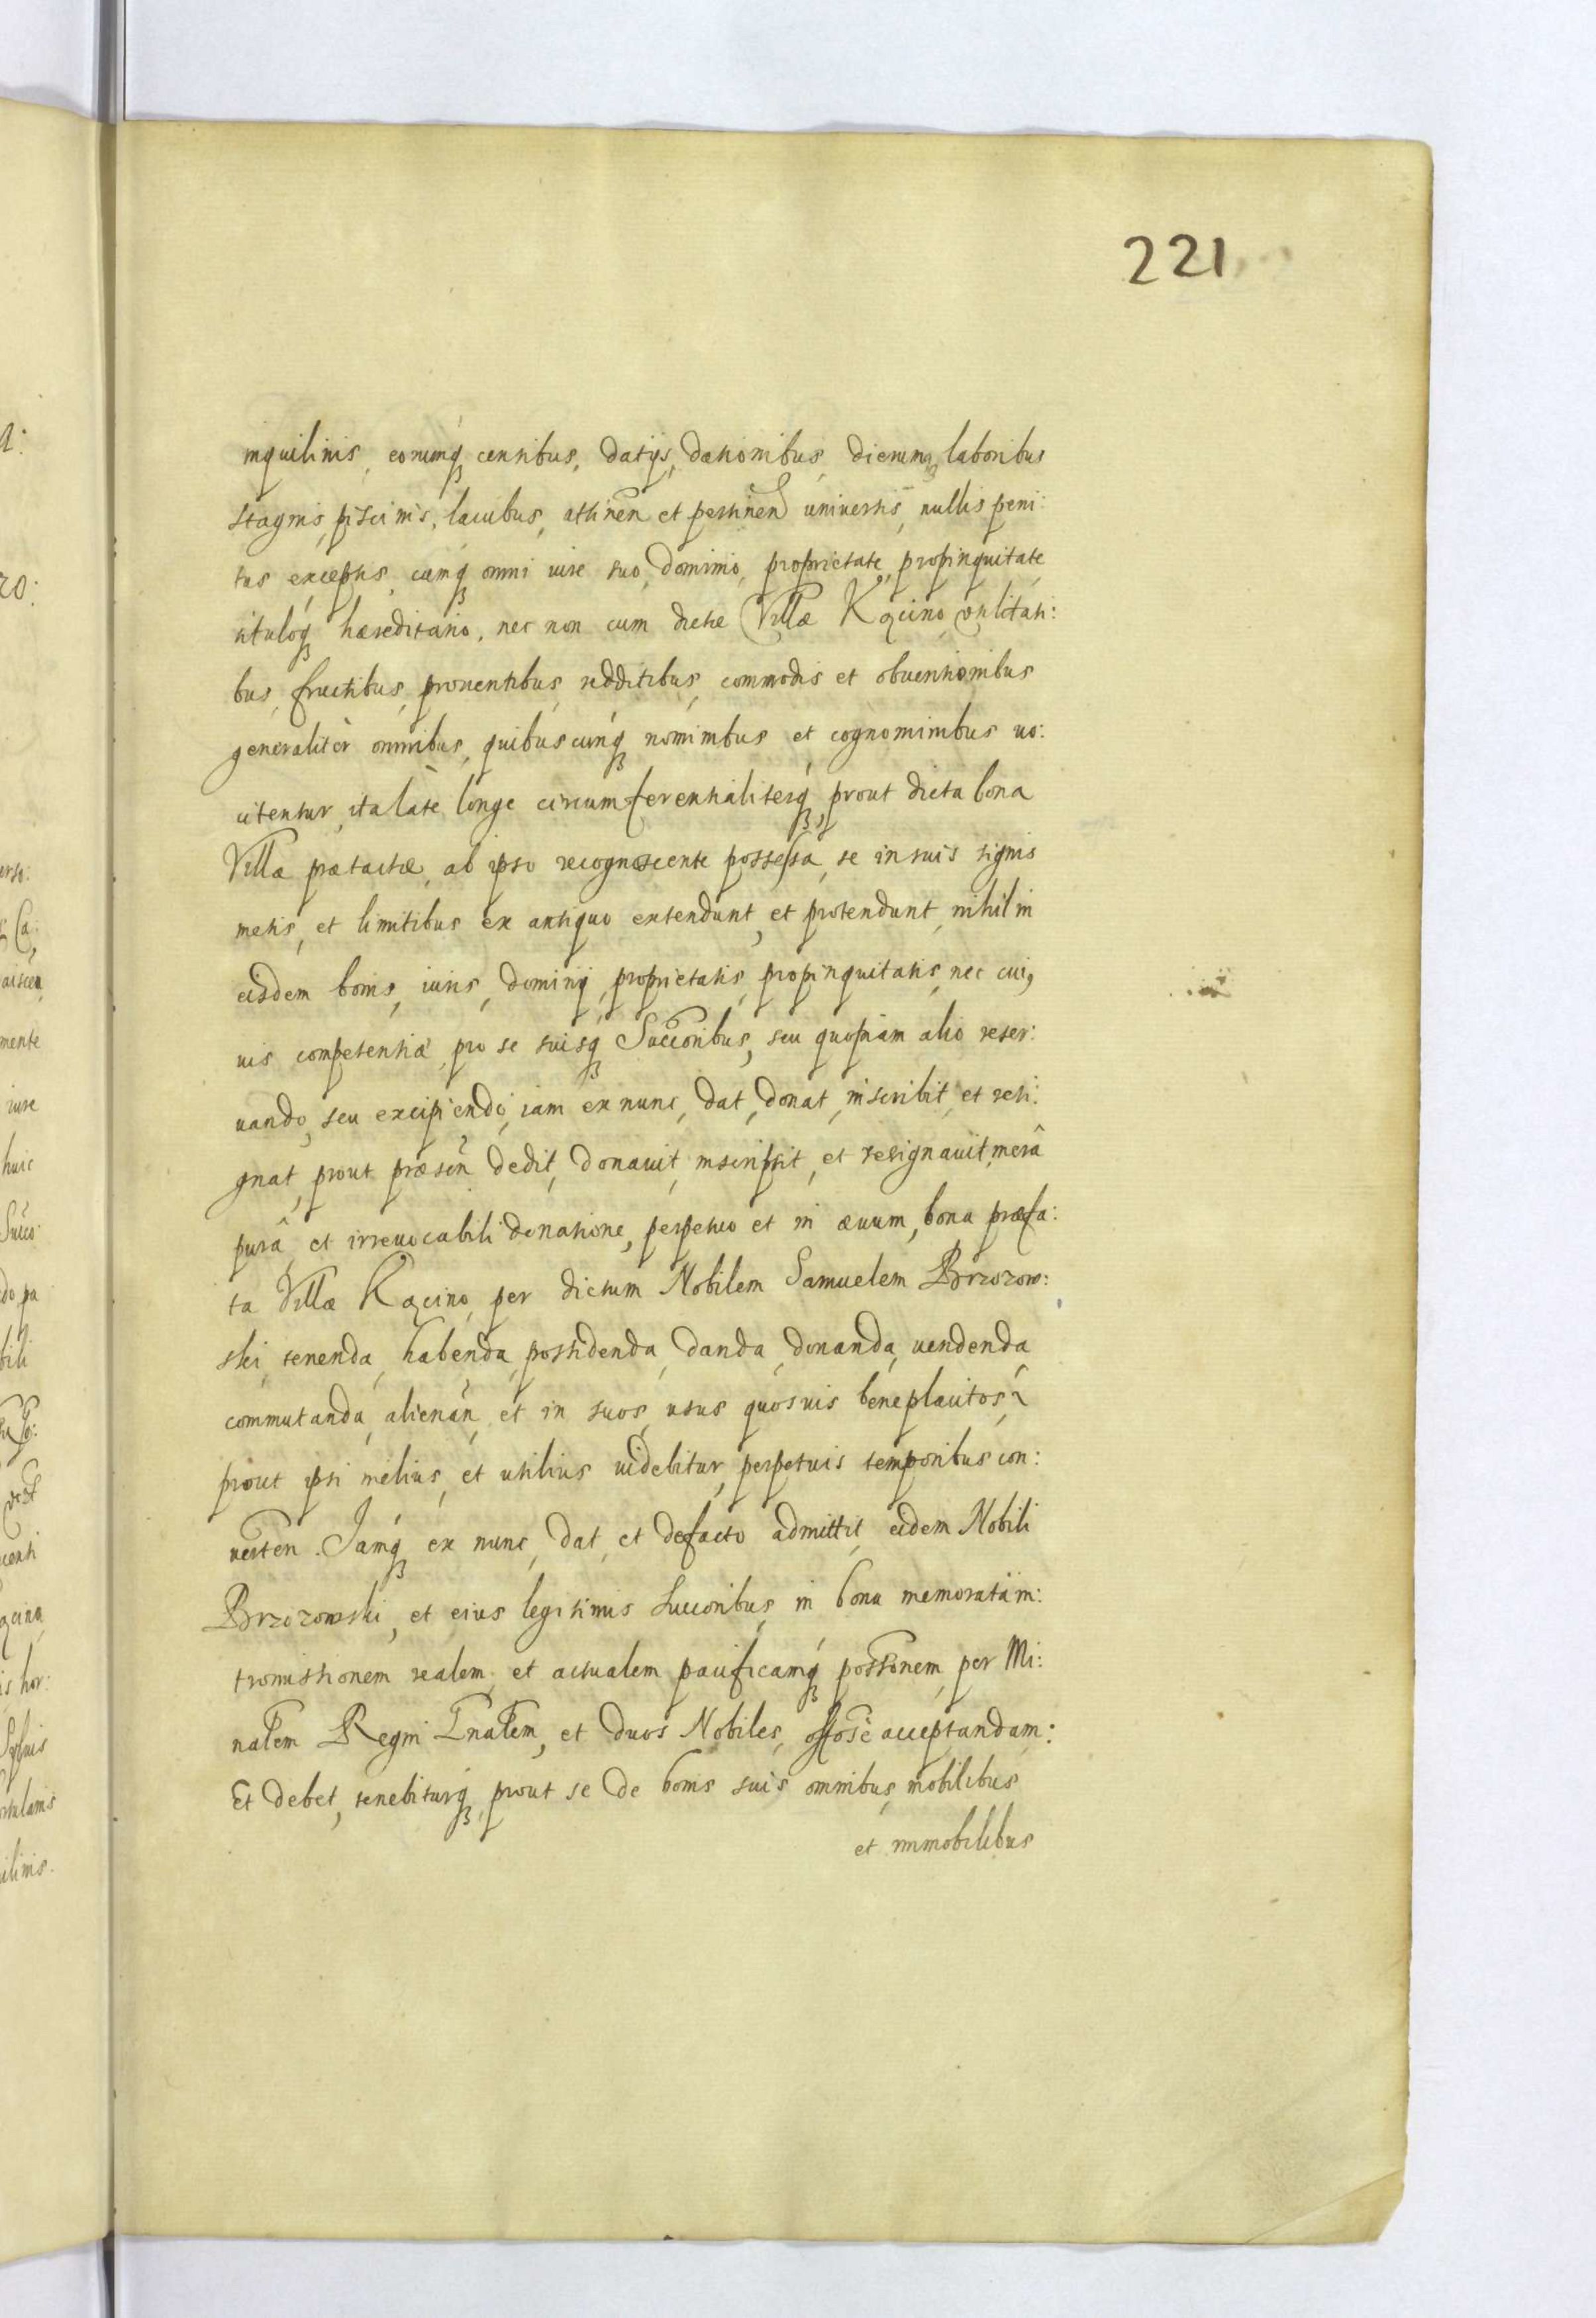 221
inquilinis, eorumq́ꝫ censibus, datijs, dationibus, dierumqꝫ laboribus
stagnis, piscinis, lacubus, attinen̄ et pertinen̄ universis, nullis peni:
tus exceptis, cumq́ꝫ omni iure suo, dominio, proprietate, propinquitate
tituloq́ꝫ hæreditario, nec non cum dictæ Villæ Kącino utilitati:
bus, fructibus, prouentibus, redditibus, commodis et obuentionibus
generalitèr omnibus, quibuscunq́ꝫ nominibus et cognominibus uo:
citentur, ita latè longe circumferentialiterq́ꝫ, prout dicta bona
Villæ prætactæ, ab ipso recognoscente possessa, se in suis signis
metis, et limitibus ex antiquo extendunt, et protendunt, nihil in
eisdem bonis, iuris, dominij, proprietatis, propinquitatis, nec cui,
uis competentiæ, pro se suisq́ꝫ Succoribus, seu quopiam alio reser:
uando, seu excipiendo, iam ex nunc, dat, donat, inscribit, et resi:
gnat, prout præsen̄ dedit, donauit, inscripsit, et resignauit, merâ
purâ, et irreuocabili donatione, perpetuo et in æuum, bona præfa:
ta Villæ Kącino, per dictum Nobilem Samuelem Brzozow:
ski, tenenda, habenda, possidenda, danda, donanda, uendenda,
commutanda, alienan̄, et in suos, usus quosuis beneplacitos,
prout ipsi melius, et utilius uidebitur, perpetuis temporibus con:
uerten. Iamq́ꝫ ex nunc, dat, et defacto admittit, eidem Nobili
Brzozowski, et eius legitimis succoribus, in bona memorata in:
tromissionem realem, et actualem pacificamq́ꝫ possonem, per Mi:
nalem Regni Gnalem, et duos Nobiles, offose acceptandam:
Et debet, tenebiturq́ꝫ, prout se de bonis suis omnibus, mobilibus
et immobilibus